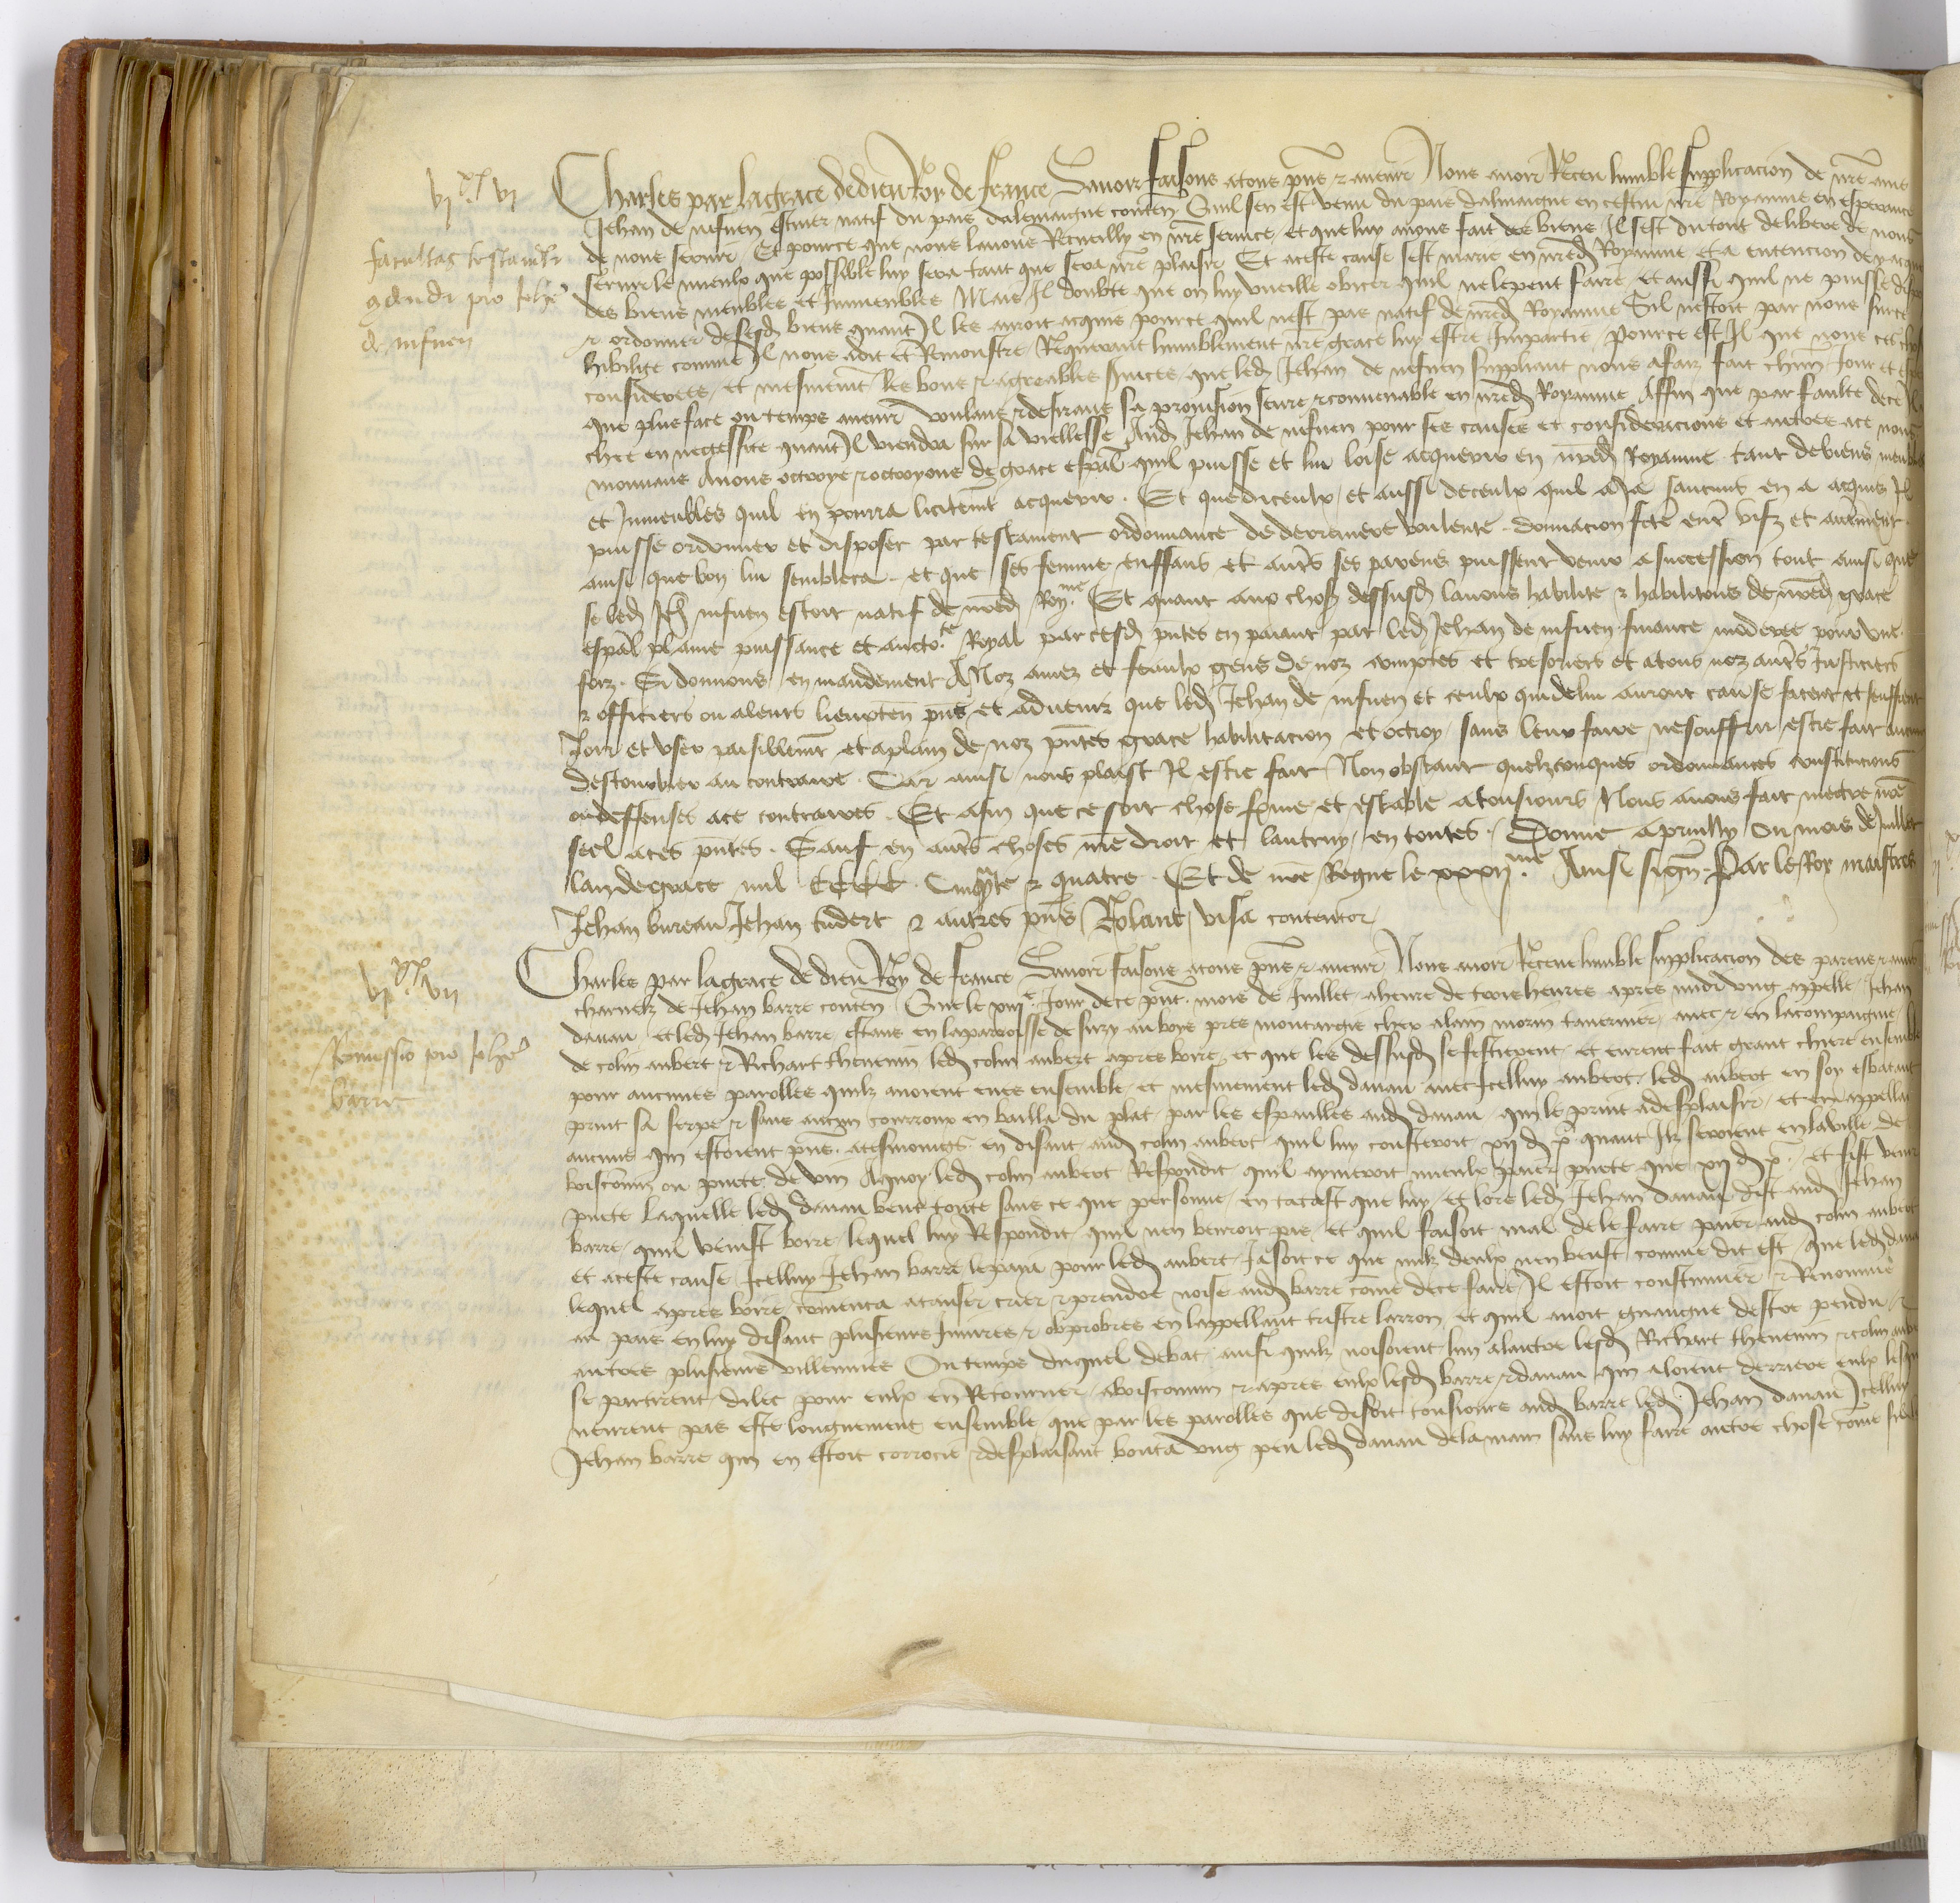 vj xx vj
Charles par la grace de dieu Roy de france Savoir faisons a tous pñs & avenir Nous avoir Receu humble supplicacion de nr̃e ame
facultas testandi
Jehan de nefuen escuier natif du pais dalemaigne conten̄ Quil sen est venu du pais dalmaigne en cestui nr̃e Royaume en esperance
de nous servir Et pource que nous lavons Recueilly en nr̃e service et que luy avons fait des biens Il sest du tout delibere de nous
condendi pro Johẽ
servir le mieulx que possible luy sera tant que sera nr̃e plaisir Et a ceste cause sest marie en nr̃ed Royaume et a entencion dey acque
des biens meubles et Immeubles Mais Il doubte que on luy vueille obicer quil ne le peut faire et aussi quil ne puisse disp
de nefuen
& ordonner de sesd biens quant Il les auroit acquis pource quil nest pas natif de nr̃ed Royaume Sil nestoit par nous sur ce
habilite comme Il nous a dit et Remonstre Requerant humblement nr̃e grace luy estre Impartie Pource est Il que nous ces ch
considerees et mesmemt les bons & agreables services que led Jehan de nefuen suppliant nous a faiz fait chũn Jour et esp
que plus face ou temps avenir voulans & desirans sa provision seure & convenable en nr̃ed Royaume Affin que par faulte de ce Il
chee en necessite quant Il viendra sur sa viellesse Aud Jehan de nefuen pour ses causes et consideracions et autres a ce nous
mouvans Avons octroye & octroyons de grace esp̃al quil puisse et lui loise acquerir en nr̃ed Royaume tant de biens meubles
et Inmeubles quil en pourra licitemt acquerir . Et que diceulx et aussi de ceulx quil a Ja saucuns en a acquis Il
puisse ordonner et disposer par testament ordonnance de derreniere voulente . donnacion fcte ent̃ vifz et autremt̃ .
ainsi que bon lui semblera . et que ses femme enffans et aut̃s ses parens puissent venir a succession tout ainsi que
se led Jeh̃ nefuen estoit natif de nr̃ed Roy.me Et quant aux chos̃ dessusd lavons habilite & habilitons de nr̃ed grace
esp̃al plaine puissance et aucto.te Royal par cesd pñtes en paiant par led Jehan de nefuen finance moderee pour une
foiz . Si donnons en mandement A Noz amez et feaulx gens de noz comptes et tresoriers et a tous noz aut̃s Justiciers
& officiers ou a leurs lieuxten̄ pñs et advenir que led Jehan de nefuen et ceulx qui de lui auront cause facent et seuffrent
Joir et user paisiblemt et a plain de noz pñtes grace habilitacion et octroy . sans leur faire ne souffrir estre fait aucun
destourbier au contraire . Car ainsi nous plaist Il estre fait Non obstant quelzconques ordonnances constitucions
ou deffenses a ce contraires . Et afin que ce soit chose ferme et estable a tousiours Nous avons fait mectre nr̃e
seel a ces pñtes . Sauf en aut̃s choses nr̃e droit et lautruy en toutes . Donne a prully ou mois de Juillet
lan de grace mil CCCC . Cinq̃te & quatre . Et de nr̃e Regne le xxxij.me Ainsi signe Par le Roy maistres
Jehan bureau Jehan tudert & autres pñs Rolant visa contentor
vj xx vij
Charles par la grace de dieu Roy de france Savoir faisons a tous pñs & avenir Nous avoir Receue humble supplicacion des parens & amis
charnelz de Jehan barre conten̄ Que le viij.e Jour de ce pñt . mois de Juillet a heure de trois heures apres midi ung appelle Jehan
Remissio pro Johẽ
davau et led Jehan barre estans en la parroisse de sury au boys pres montargis chex alain morin tavernier avec & en la compaignie
de colin aubert & Richart thevenin led colin aubert apres boire et que les dessusd se festierent et eurent fait grant chiere ensemble
barre
pour aucunes parolles quilz avoient eues ensemble et mesmement led davau avec Icelluy aubert . led aubert en soy esbatant
print sa serpe & sans aucun courroux en bailla du plat par les espaulles aud davau qui le print a desplaisir et en appella
aucuns qui estoient pñs a tesmoings en disant aud colin aubert quil luy cousteroit xij d p̃ quant Ilz seroient en la ville de
boiscomun ou pinte de vin A quoy led colin aubert Respondit quil aymeroit mieulx paier pinte que xij d p̃ . et fist venir
pinte laquelle led davau beut toute sans ce que personne en tatast que luy et lors led Jehan davau dist aud Jehan
barre quil venist boire lequel luy Respondit quil nen beuroit pas et quil faisoit mal de le faire paier aud colin aubert
et a ceste cause Icelluy Jehan barre le paya pour led aubert Jasoit ce que nulz deulx nen beust comme dit est que led davau
lequel apres boire comenca a tanser crier & prendre noise aud barre come de ce faire Il estoit coustumier & Renomme
au pais en luy disant plusieurs Iniures & obprobres en lappellant traistre larron et quil avoit guaigne destre pendu &
autres plusieurs villennies Ou temps duquel debat ainsi quilz noisoient lun a lautre lesd Richart thevenin & colin aubert
se partirent dilec pour eulx en Retourner a boiscomun & apres eulx lesd barre & davau qui aloient derriere eulx lesq
neurent pas este longuement ensemble que par les parolles que disoit tousiours aud barre led Jehan davau Icelluy
Jehan barre qui en estoit corrocie & desplaisant bouta ung peu led davau de la main sans luy faire autre chose come